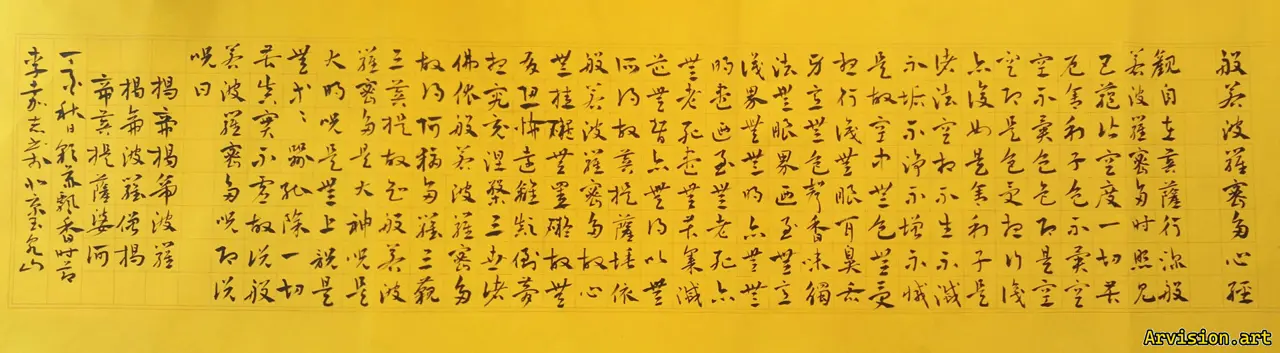 般若波羅蜜多心經
觀自在菩薩行深般
若波羅蜜多時照見
五蘊皆空度一切苦
厄舍利子色不異空
空不異色色即是空
空即是色受想行識
亦復如是舍利子是
諸法空相不生不滅
不垢不淨不增不減
是故空中無色無受
想行識無眼耳鼻舌
身意無色聲香味觸
法無眼界乃至無意
識界無無明亦無無
明盡乃至無老死亦
無老死盡無苦集滅
道無智亦無得以無
所得故菩提薩埵依
般若波羅蜜多故心
無挂礙無罣礙故無
有恐怖遠離顛倒夢
想究竟涅槃三世諸
佛依般若波羅蜜多
故得阿耨多羅三藐
三菩提故知般若波
羅蜜多是大神咒是
大明咒是無上咒是
無等等咒能除一切
苦真實不虛故說般
若波羅蜜多咒即說
咒曰
揭帝揭帝波羅
揭帝波羅僧揭
帝菩提薩婆訶
秋日飄香時節
李志北京山
Arvision.art